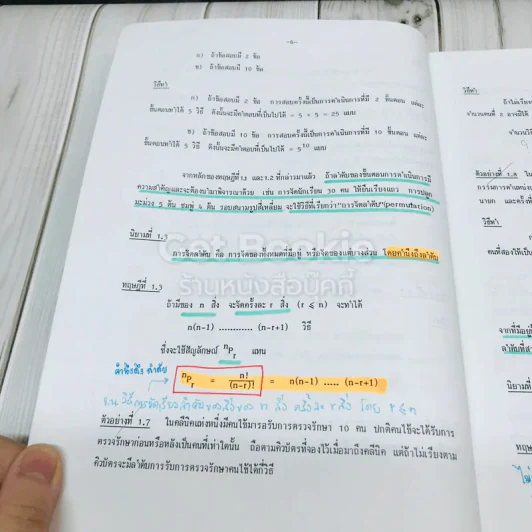 -6-
ก) ถ้าข้อสอบมี 2 ข้อ
ข) ถ้าข้อสอบมี 10 ข้อ
วิธีทำ
ก) ถ้าข้อสอบมี 2 ข้อ การสอบครั้งนี้เป็นการดำเนินการที่มี 2 ขั้นตอน แต่ละ
ขั้นตอนทำได้ 5 วิธี ดังนั้นจะมีคำตอบที่เป็นไปได้ = 5 × 5 = 25 แบบ
ข) ถ้าข้อสอบมี 10 ข้อ การสอบครั้งนี้เป็นการดำเนินการที่มี 10 ขั้นตอน แต่ละ
ขั้นตอนทำได้ 5 วิธี ดังนั้นจะมีคำตอบที่เป็นไปได้ = 5¹⁰ แบบ
จากหลักของทฤษฎีที่ 1.1 และ 1.2 ที่กล่าวมาแล้ว ถ้าลำดับของขั้นตอนการดำเนินการมี
ความสำคัญและจะต้องนำมาพิจารณาด้วย เช่น การจัดนักเรียน 30 คน ให้ยืนเรียงแถว การปลูก
มะม่วง 5 ต้น ชมพู่ 4 ต้น รอบสนามรูปสี่เหลี่ยม จะใช้วิธีที่เรียกว่า "การจัดลำดับ" (permutation)
นิยามที่ 1.3
การจัดลำดับ คือ การจัดของทั้งหมดที่มีอยู่ หรือจัดของแต่บางส่วน โดยคำนึงถึงลำดับ
Get Bookie
ร้านหนังสือบุ๊คกี้
ทฤษฎีที่ 1.3
ถ้ามีของ n สิ่ง จะจัดครั้งละ r สิ่ง (r ≤ n) จะทำได้
n(n-1) ............ (n-r+1) วิธี
ซึ่งจะใช้สัญลักษณ์ ⁿPᵣ แทน
คำนึงถึง ลำดับ
ⁿPᵣ = n!/(n-r)! = n(n-1) ..... (n-r+1)
ตัวอย่างที่ 1.7 ในคลีนิคแห่งหนึ่งมีคนไข้มารอรับการตรวจรักษา 10 คน ปกติคนไข้จะได้รับการ
ตรวจรักษาก่อนหรือหลังเป็นคนที่เท่าใดนั้น ถือตามคิวบัตรที่จองไว้เมื่อมาถึงคลีนิค แต่ถ้าไม่เรียงตาม
คิวบัตรจะมีลำดับการรับการตรวจรักษาคนไข้ได้กี่วิธี
ถ้าไม่เรียง
จำนวนคนที่ 2
ตัวอย่างที่ 1.8
วิธีทำ
คนที่สองให้เป็น
จากที่มีอยู่